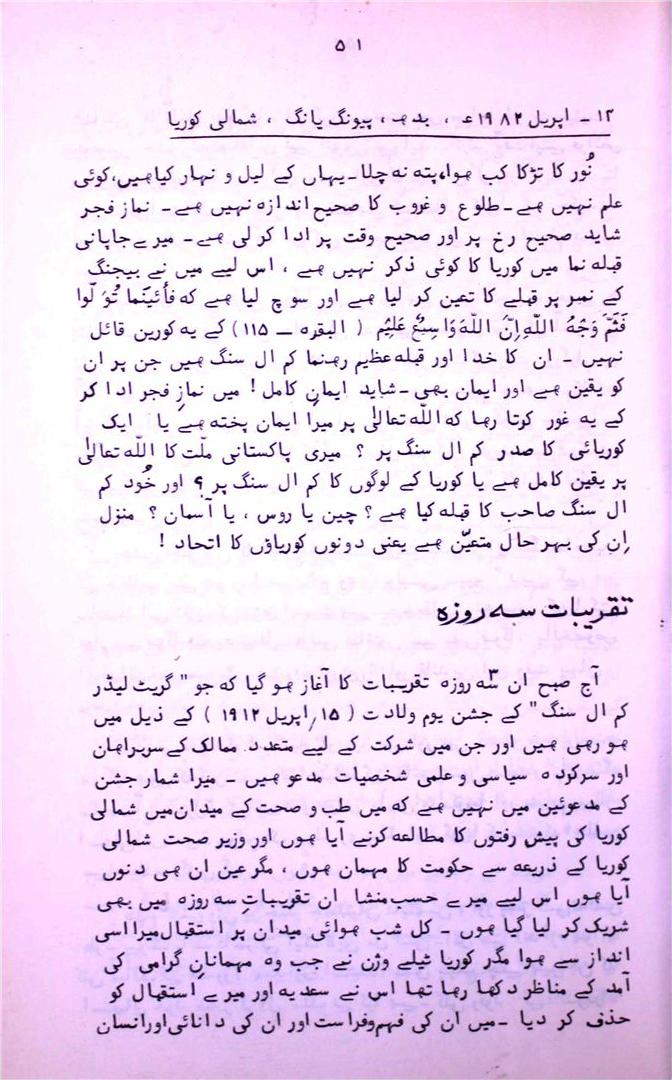 ۵۱
۱۴ ـ اپریل ۱۹۸۲ ء ، بدھ ، پیونگ یانگ ، شمالی کوریا
نُور کا تڑکا کب ھوا، پتہ نہ چلا ـ یہاں کے لیل و نہار کیا ھیں، کوئی
علم نہیں ھے ـ طلوع و غروب کا صحیح اندازہ نہیں ھے ـ نماز فجر
شاید صحیح رخ پر اور صحیح وقت پر ادا کر لی ھے ـ میرے جاپانی
قبلہ نما میں کوریا کا کوئی ذکر نہیں ھے ، اس لیے میں نے بیجنگ
کے نمبر پر قبلے کا تعین کر لیا ھے اور سوچ لیا ھے کہ فَأَيْنَمَا تُوَلُّوا
فَثَمَّ وَجْهُ اللّٰهِ اِنَّ اللّٰهَ وَاسِعٌ عَلِيْمٌ ( البقرہ ــ ۱۱۵ ) کے یہ کورین قائل
نہیں ـ ان کا خدا اور قبلہ عظیم رھنما کم ال سنگ ھیں جن پر ان
کو یقین ھے اور ایمان بھی ـ شاید ایمانِ کامل ! میں نمازِ فجر ادا کر
کے یہ غور کرتا رھا کہ اللّٰہ تعالیٰ پر میرا ایمان پختہ ھے یا ایک
کوریائی کا صدر کم ال سنگ پر ؟ میری پاکستانی ملّت کا اللّٰہ تعالیٰ
پر یقین کامل ھے یا کوریا کے لوگوں کا کم ال سنگ پر ؟ اور خُود کم
ال سنگ صاحب کا قبلہ کیا ھے ؟ چین یا روس ، یا آسمان ؟ منزل
اِن کی بہر حال متعیّن ھے یعنی دونوں کوریاؤں کا اتحاد !
تقریبات سہ روزہ
آج صبح ان سہ روزہ تقریبات کا آغاز ھو گیا کہ جو " گریٹ لیڈر
کم ال سنگ " کے جشن یوم ولادت ( ۱۵ / اپریل ۱۹۱۲ ) کے ذیل میں
ھو رھی ھیں اور جن میں شرکت کے لیے متعدد ممالک کے سربراھان
اور سرکردہ سیاسی و علمی شخصیات مدعو ھیں ـ میرا شمار جشن
کے مدعوئین میں نہیں ھے کہ میں طب و صحت کے میدان میں شمالی
کوریا کی پیش رفتوں کا مطالعہ کرنے آیا ھوں اور وزیر صحت شمالی
کوریا کے ذریعہ سے حکومت کا مہمان ھوں ، مگر عین ان ھی دنوں
آیا ھوں اس لیے میرے حسب منشا ان تقریباتِ سہ روزہ میں بھی
شریک کر لیا گیا ھوں ـ کل شب ھوائی میدان پر استقبال میرا اسی
انداز سے ھوا مگر کوریا ٹیلے وژن نے جب وہ مہمانانِ گرامی کی
آمد کے مناظر دکھا رھا تھا اس نے سعدیہ اور میرے استقبال کو
حذف کر دیا ـ میں ان کی فہم و فراست اور ان کی دانائی اور انسان